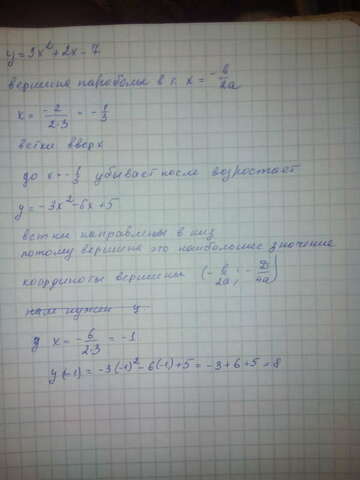 y=3x²+2x-7
вершина параболы в т. x = -b/2a
x = -2/2·3 = -1/3
ветки вверх
до x=-1/3 убывает после возростает
y=-3x²-6x+5
ветки направлены в низ
потому вершина это наибольшее значение
координоты вершины (-b/2a; -D/4a)
нам нужен y
x = -6/2·3 = -1
y(-1) = -3(-1)²-6(-1)+5 = -3+6+5=8